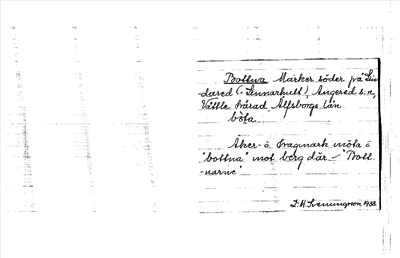 Bottna Marker söder på Lin-
dared (= Linnarhult), Angered s:n,
Vättle härad, Älfsborgs län.
båfa
Åker- o. hagmark möta o
"bottna" mot berg där. – "Bott-
narne"
D. A. Svenungsson 1938.